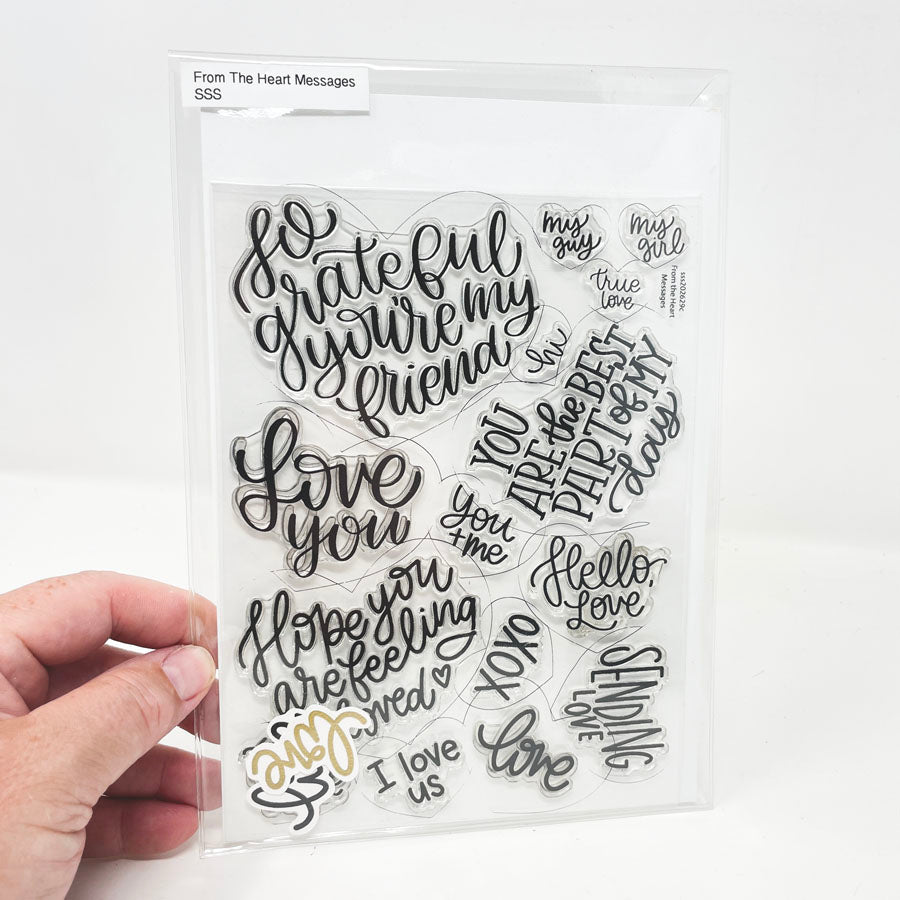 From The Heart Messages
SSS
so
grateful
you're my
friend
my
guy
my
girl
true
love
sss202629c
From the Heart
Messages
hi
YOU
ARE the BEST
PART of MY
day
Love
you
you
+me
Hello,
Love
Hope you
are feeling
loved
XOXO
SENDING
LOVE
love
I love
us
love